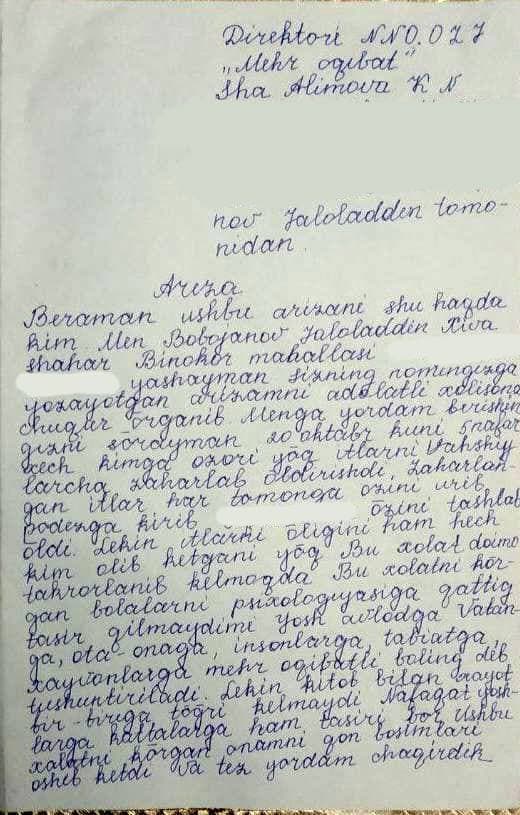 Direktori NNO.OZZ
„Mehr oqibat"
Sha Alimova K N
nov Jaloladden tomo-
nidan.
Ariza
Beraman ushbu arizani shu haqda
kim. Men Bobojanov Jaloladdin Xiva
shahar Binokor mahallasi
yashayman sizning nomingizga
yozayotgan arizamni adolatli xolisona
chuqur organib. Menga yordam berishin
gizni sorayman 20 oktabr kuni 5 nafar
xech kimga ozori yoq itlarni Vahshiy
larcha zaharlab õldirishdi, zaharlan-
gan itlar har tomonga õzini urib
podezga kirib õzini tashlab
õldi. Lekin itlarni õligini ham hech
kim olib ketgani yõq Bu xolat doimo
takrorlanib kelmoqda Bu xolatni kõr-
gan bolalarni psixologiyasiga qattiq
tasir qilmaydimi yosh avlodga Vatan-
ga, ota-onaga, insonlarga, tabiatga,
xayvonlarga mehr oqibatli boling deb
tushuntiriladi. Lekin kitob bilan xayot
bir-biriga tõg̃ri kelmaydi Nafaqat yosh-
larga kattalarga ham tasiri bor Ushbu
xolatni kõrgan onamni qon bosimlari
oshib ketdi va tez yordam chaqirdik